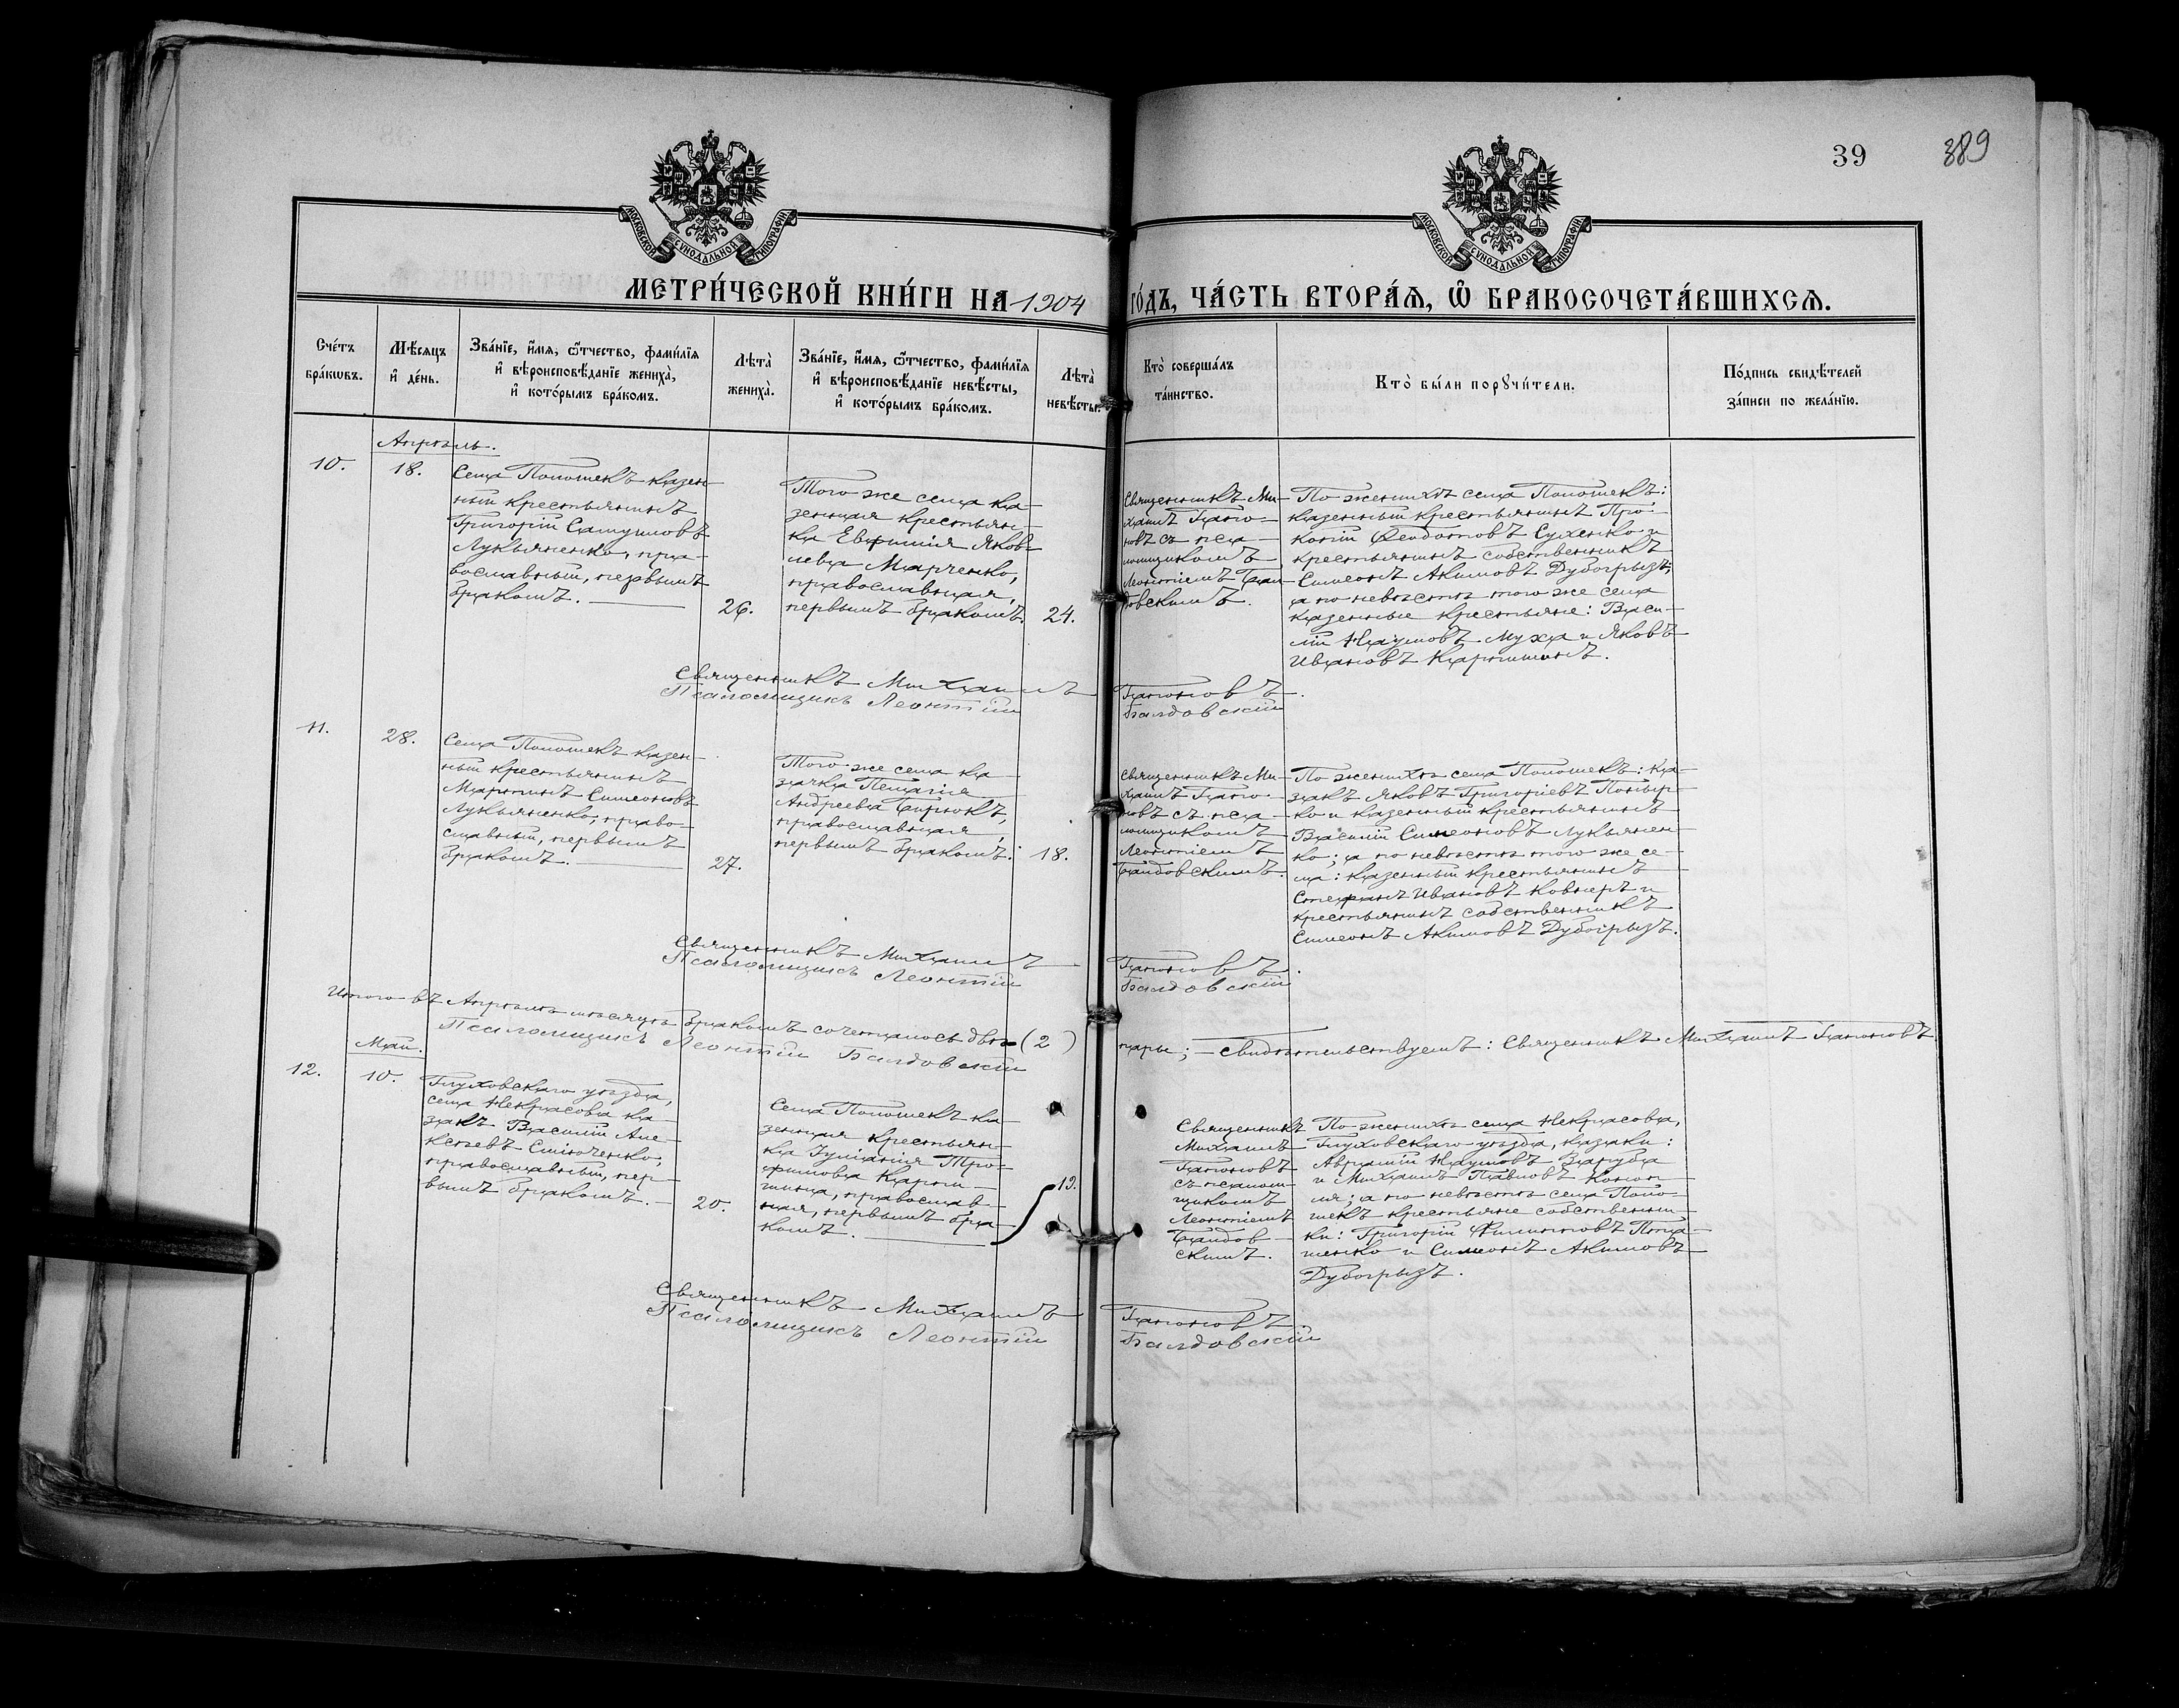 39
389
МОСКОВСКОЙ СѴНОДАЛЬНОЙ ТИПОГРАФІИ
МОСКОВСКОЙ СѴНОДАЛЬНОЙ ТИПОГРАФІИ
МЕТРИ́ЧЕСКОЙ КНИ́ГИ НА 1904 ГО́ДЪ, ЧА́СТЬ ВТОРА́Ѧ, Ѽ БРАКОСОЧЕТА́ВШИХСѦ.
Сче́тъ
бра́кѡвъ.
Мѣ́сѧцъ
и҆ де́нь.
Зва́нїе, и҆́мѧ, ѻ҆́тчество, фами́лїѧ
и҆ вѣроисповѣ́данїе жениха̀,
и҆ кото́рымъ бра́комъ.
Лѣта̀
жениха̀.
Зва́нїе, и҆́мѧ, ѻ҆́тчество, фами́лїѧ
и҆ вѣроисповѣ́данїе невѣ́сты,
и҆ кото́рымъ бра́комъ.
Лѣта̀
невѣ́сты.
Кто̀ соверша́лъ
та́инство.
Кто̀ бы́ли порꙋчи́тели.
По́дпись свидѣ́телей
за́писи по жела́нїю.
Апрѣль.
10.
18.
Села Полошекъ казен-
ный крестьянинъ
Григорій Самуиловъ
Лукьяненко, пра-
вославный, первымъ
бракомъ.
26.
Того же села ка-
зенная крестьян-
ка Евфимія Яков-
лева Марченко,
православная,
первымъ бракомъ.
24.
Священникъ Ми-
хаилъ
съ пса-
ломщикомъ
Леонтіемъ Балдовскимъ.
По женихѣ села Полошекъ:
казенный крестьянинъ Про-
копій Ѳеодотовъ Сухенко и
крестьянинъ собственникъ
Симеонъ Акимовъ Дубогрызъ,
а по невѣстѣ того же села
казенные крестьяне: Васи-
лій Наумовъ Муха и Яковъ
Ивановъ Карпишинъ.
Священникъ Михаилъ
Псаломщикъ Леонтій Балдовскій
11.
28.
Села Полошекъ казен-
ный крестьянинъ
Мартинъ Симеоновъ
Лукьяненко, право-
славный, первымъ
бракомъ.
27.
Того же села ка-
зачка Пелагія
Андреева Бирюкъ,
православная,
первымъ бракомъ.
18.
Священникъ Ми-
хаилъ
съ пса-
ломщикомъ
Леонтіемъ
Балдовскимъ.
По женихѣ села Полошекъ: ка-
закъ Яковъ Григоріевъ
и казенный крестьянинъ
Василій Симеоновъ Лукьянен-
ко; а по невѣстѣ того же се-
ла: казенный крестьянинъ
Стефанъ Ивановъ Ковнеръ и
крестьянинъ собственникъ
Симеонъ Акимовъ Дубогрызъ.
Священникъ Михаилъ
Псаломщикъ Леонтій Балдовскій
Итого въ Апрѣлѣ мѣсяцѣ бракомъ сочеталось двѣ (2) пары; — свидѣтельствуемъ: Священникъ Михаилъ
Псаломщикъ Леонтій Балдовскій
Май.
12.
10.
Глуховскаго уѣзда,
села Некрасова ка-
закъ Василій Але-
ксѣевъ
православный, пер-
вымъ бракомъ.
20.
Села Полошекъ ка-
зенная крестьян-
ка Іуліанія Тро-
фимова Карпи-
шина, православ-
ная, первымъ бра-
комъ.
19.
Священникъ
Михаилъ
съ псалом-
щикомъ
Леонтіемъ
Балдов-
скимъ.
По женихѣ села Некрасова,
Глуховскаго уѣзда, казаки:
Аврамій Наумовъ Заруба
и Михаилъ Павловъ Коноп-
ля; а по невѣстѣ села Поло-
шекъ крестьяне собственни-
ки: Григорій Филиповъ
и Симеонъ Акимовъ
Дубогрызъ.
Священникъ Михаилъ
Псаломщикъ Леонтій Балдовскій